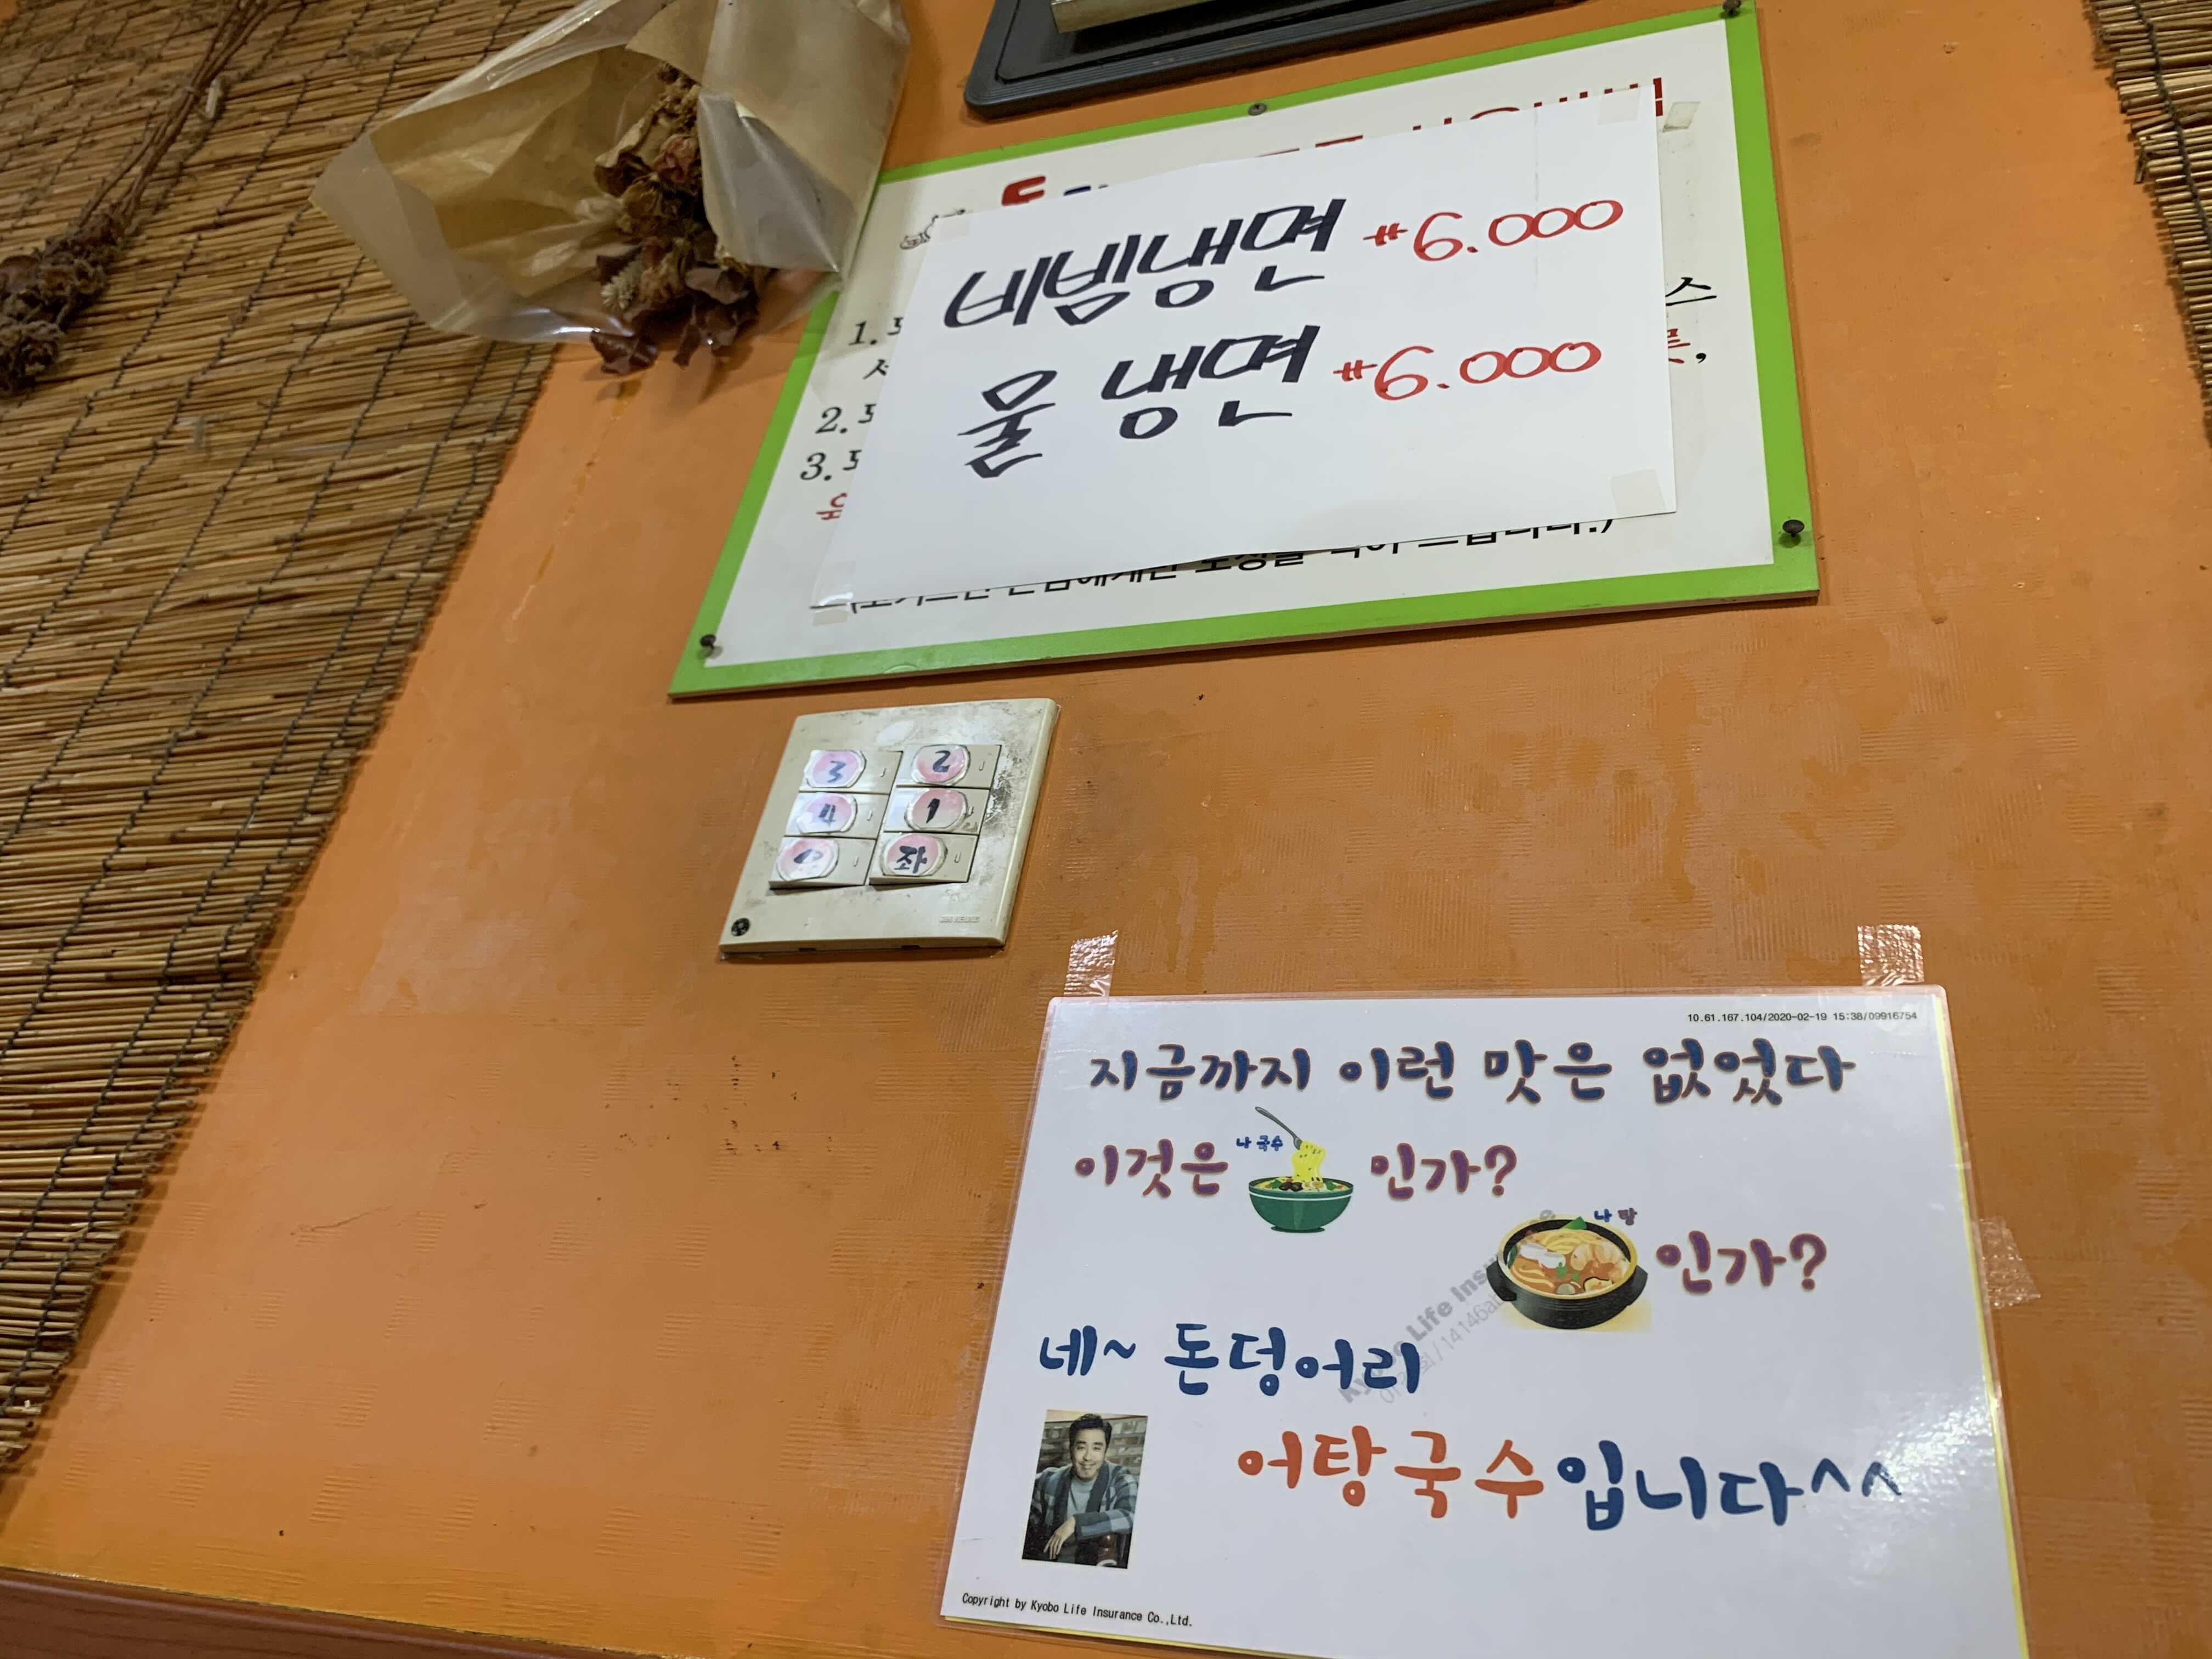 비빔냉면 ₩6.000
물 냉면 ₩6.000
1.
스
2.
3.
3 2
4 1
좌
10.61.167.104/2020-02-19 15:38/09916754
지금까지 이런 맛은 없었다
이것은 나 국수 인가?
나 탕 인가?
네~ 돈덩어리
어탕국수입니다^^
Kyobo Life Insu
Copyright by Kyobo Life Insurance Co.,Ltd.